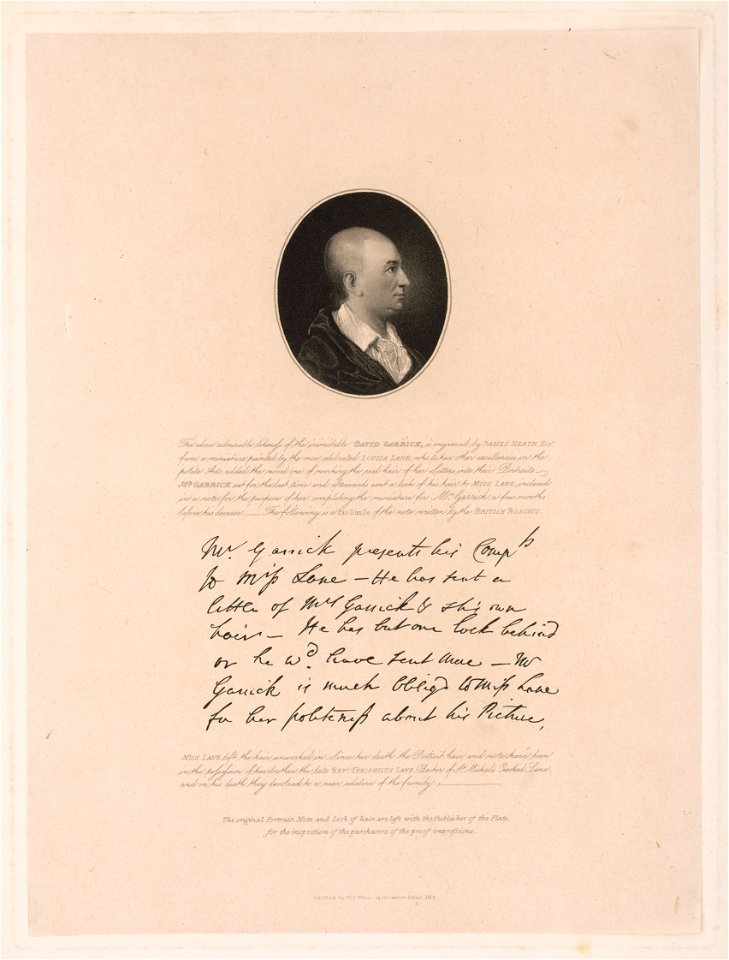 The above admirable likeness of the inimitable DAVID GARRICK, is engraved by JAMES HEATH, Esqr
from a miniature painted by the once celebrated LOUISA LANE, who to her other excellencies in the
polite Arts, added the novel one of working the real hair of her Sitters into their Portraits
Mr GARRICK sat for the last time and afterwards sent a lock of his hair to MISS LANE, inclosed
in a note, for the purpose of her completing the miniature for Mrs Garrick a few months
before his decease. The following is a Fac Simile of the note, written by the BRITISH ROSCIUS.
Mr Garrick presents his Compts
to Miss Lane – He has sent a
little of Mrs Garrick's & his own
hair – He has but one lock behind
or he wd have sent more – Mr
Garrick is much obligd to Miss Lane
for her politeness about his Picture,
MISS LANE left the hair unworked in. Since her death the Portrait, hair and note have been
in the possession of her brother the late REVd THEOPHILUS LANE, Rector of St Michaels Crooked Lane,
and on his death they devolved to a near relative of the family.
The original Portrait, Note and Lock of hair are left with the Publisher of the Plate
for the inspection of the purchasers of the proof impressions.
Published by